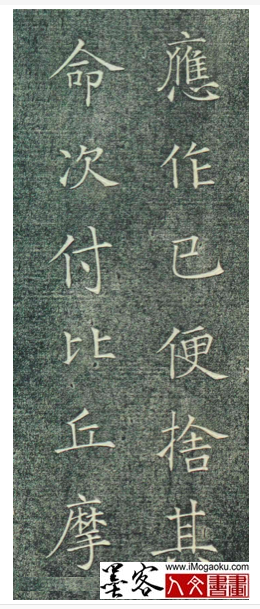 應作已便捨其
命次付比丘摩
www.iMogaoku.com
墨客人文書畫